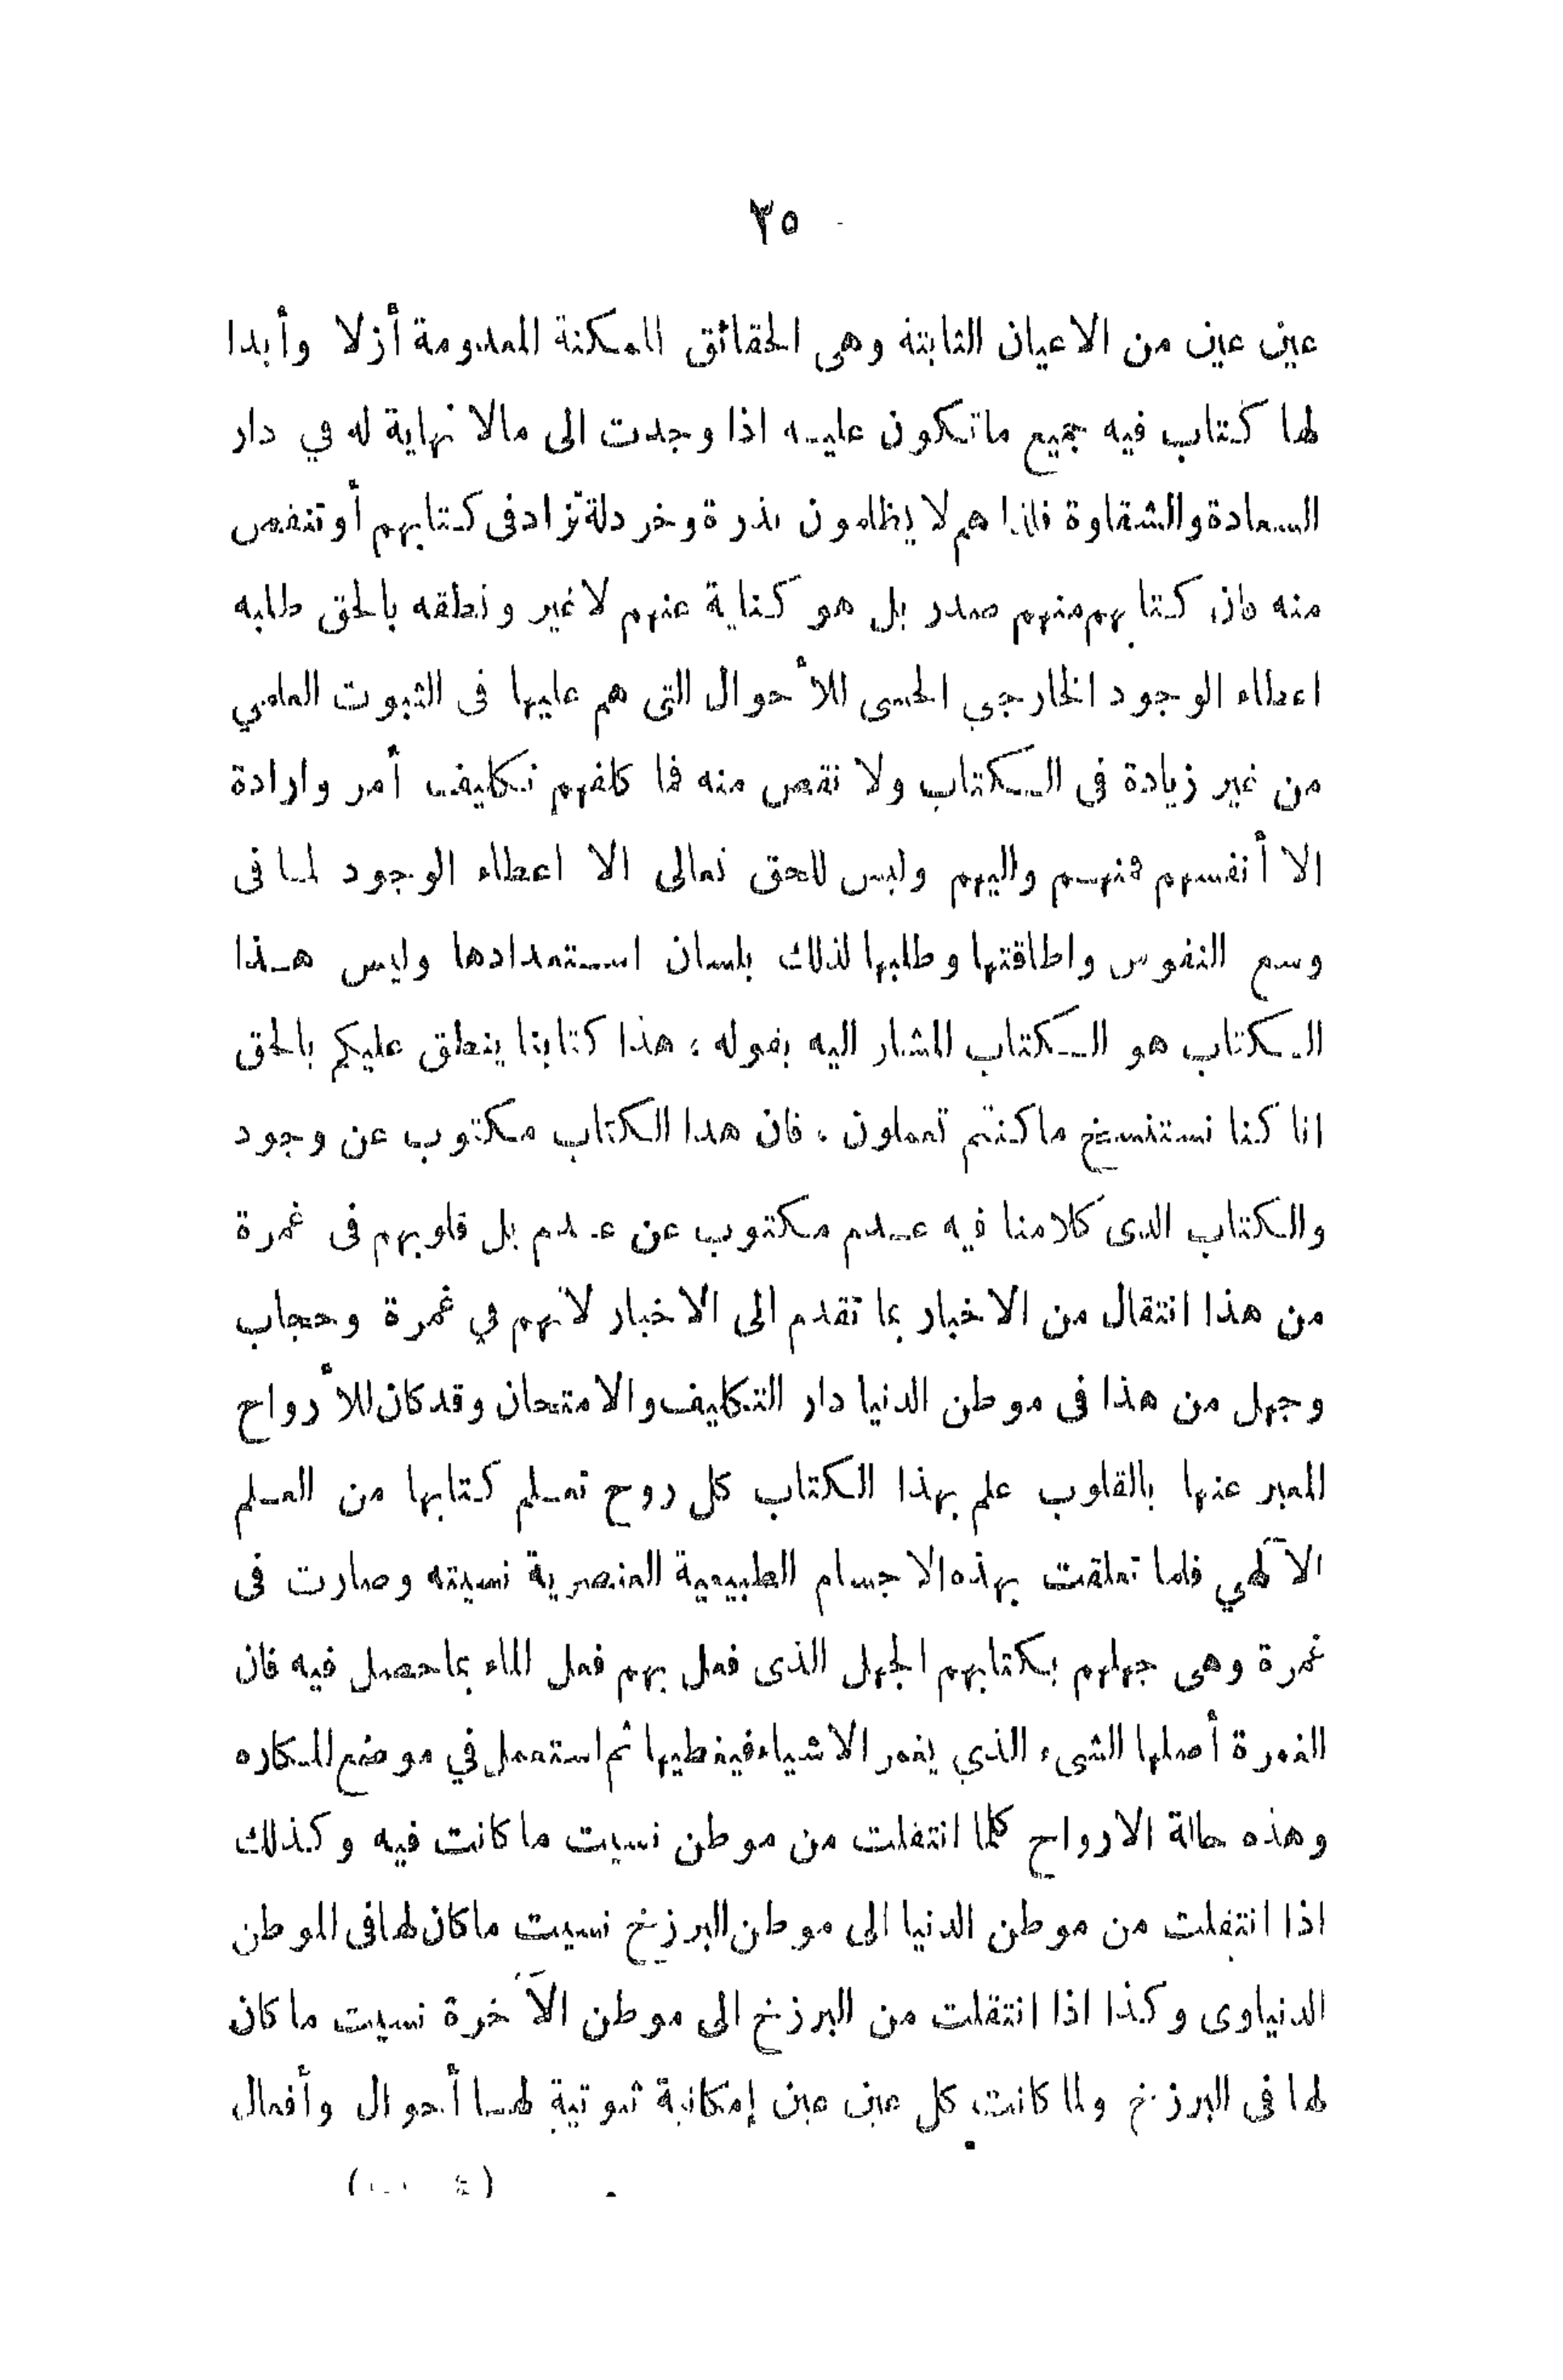 ٢٥
عين عين من الاعيان الثابتة وهى الحقائق الممكنة المعدومة أزلا وأبدا
لها كتاب فيه جميع ماتكون عليه اذا وجدت الى مالا نهاية له في دار
السعادة والشقاوة فلذا هم لا يظلمون بذرة وخردلة تزاد فى كتابهم أو تنقص
منه فان كتابهم منهم صدر بل هو كناية عنهم لاغير ونطقه بالحق طلبه
اعطاء الوجود الخارجي الحسى للأحوال التى هم عليها فى الثبوت العلمي
من غير زيادة فى الكتاب ولا نقص منه فما كلفهم تكليف أمر وارادة
الا أنفسهم فمنهم واليهم وليس للحق تعالى الا اعطاء الوجود لما فى
وسع النفوس واطاقتها وطلبها لذلك بلسان استعدادها وليس هذا
الكتاب هو الكتاب المشار اليه بقوله : هذا كتابنا ينطق عليكم بالحق
انا كنا نستنسخ ماكنتم تعملون ، فان هذا الكتاب مكتوب عن وجود
والكتاب الذى كلامنا فيه عدم مكتوب عن عدم بل قلوبهم فى غمرة
من هذا انتقال من الاخبار بما تقدم الى الاخبار لانهم في غمرة وحجاب
وجهل من هذا فى موطن الدنيا دار التكليف والامتحان وقد كان للأرواح
المعبر عنها بالقلوب علم بهذا الكتاب كل روح تعلم كتابها من العلم
الآلهي فلما تعلقت بهذه الاجسام الطبيعية العنصرية نسيته وصارت فى
غمرة وهى جهلهم بكتابهم الجهل الذى فعل بهم فعل الماء بما حصل فيه فان
الغمرة أصلها الشىء الذي يغمر الاشياء فيغطيها ثم استعمل في موضع المكاره
وهذه حالة الارواح كلما انتقلت من موطن نسيت ما كانت فيه وكذلك
اذا انتقلت من موطن الدنيا الى موطن البرزخ نسيت ماكان لها فى الموطن
الدنياوى وكذا اذا انتقلت من البرزخ الى موطن الآخرة نسيت ما كان
لها فى البرزخ ولما كانت كل عين عين إمكانية ثبوتية لها أحوال وأفعال